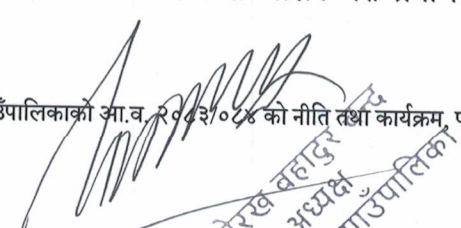 उँपालिकाको आ.व. २०८३/०८४ को नीति तथा कार्यक्रम,
बहादुर
अध्यक्ष
गाउँपालिका